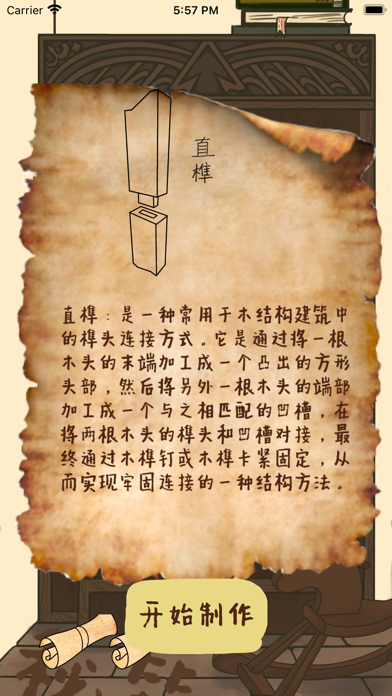 Carrier
5:57 PM
直榫
直榫：是一种常用于木结构建筑中
的榫头连接方式。它是通过将一根
木头的末端加工成一个凸出的方形
头部，然后将另外一根木头的端部
加工成一个与之相匹配的凹槽，在
将两根木头的榫头和凹槽对接，最
终通过木榫钉或木榫卡紧固定，从
而实现牢固连接的一种结构方法。
开始制作